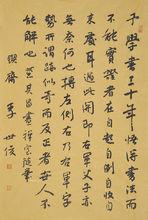 予學書三十年悟得書法而
不能實證者在自起自倒自收自
束處耳過此關即右軍父子亦
無奈何也轉左側右乃右軍字
勢所謂迹似奇而反正者世人不
能解也董其昌畫禪室隨筆
李世